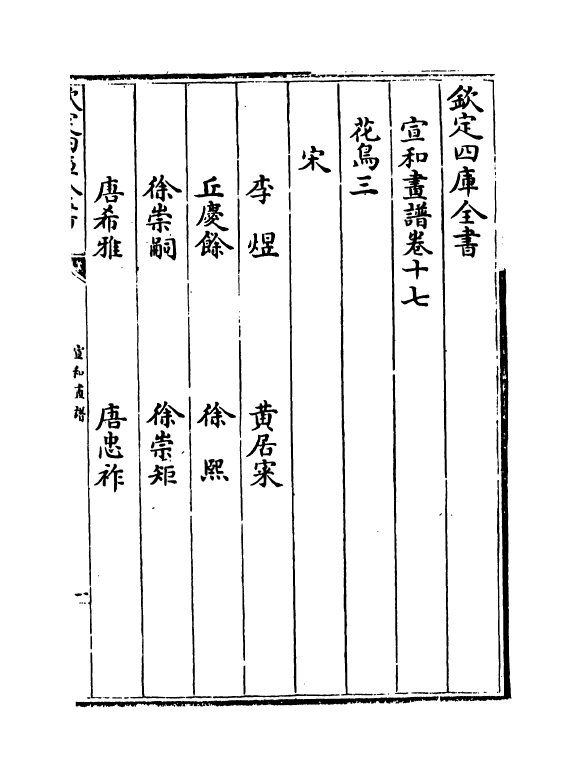 欽定四庫全書
宣和畫譜卷十七
花鳥三
宋
李煜　黄居寀
丘慶餘　徐熙
徐崇嗣　徐崇矩
唐希雅　唐忠祚
欽定四庫全書
宣和畫譜
一